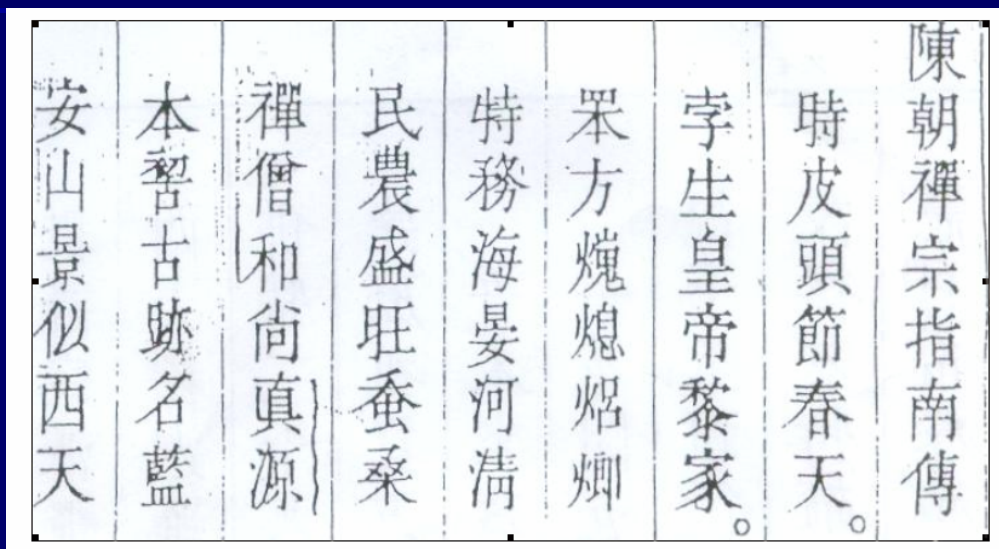 陳朝禪宗指南傳
時皮頭節春天。
孛生皇帝黎家。
𦊚方熄
特務海晏河清
民農盛旺蚕桑
禪僧和尚真源
本古跡名藍
安山景似西天